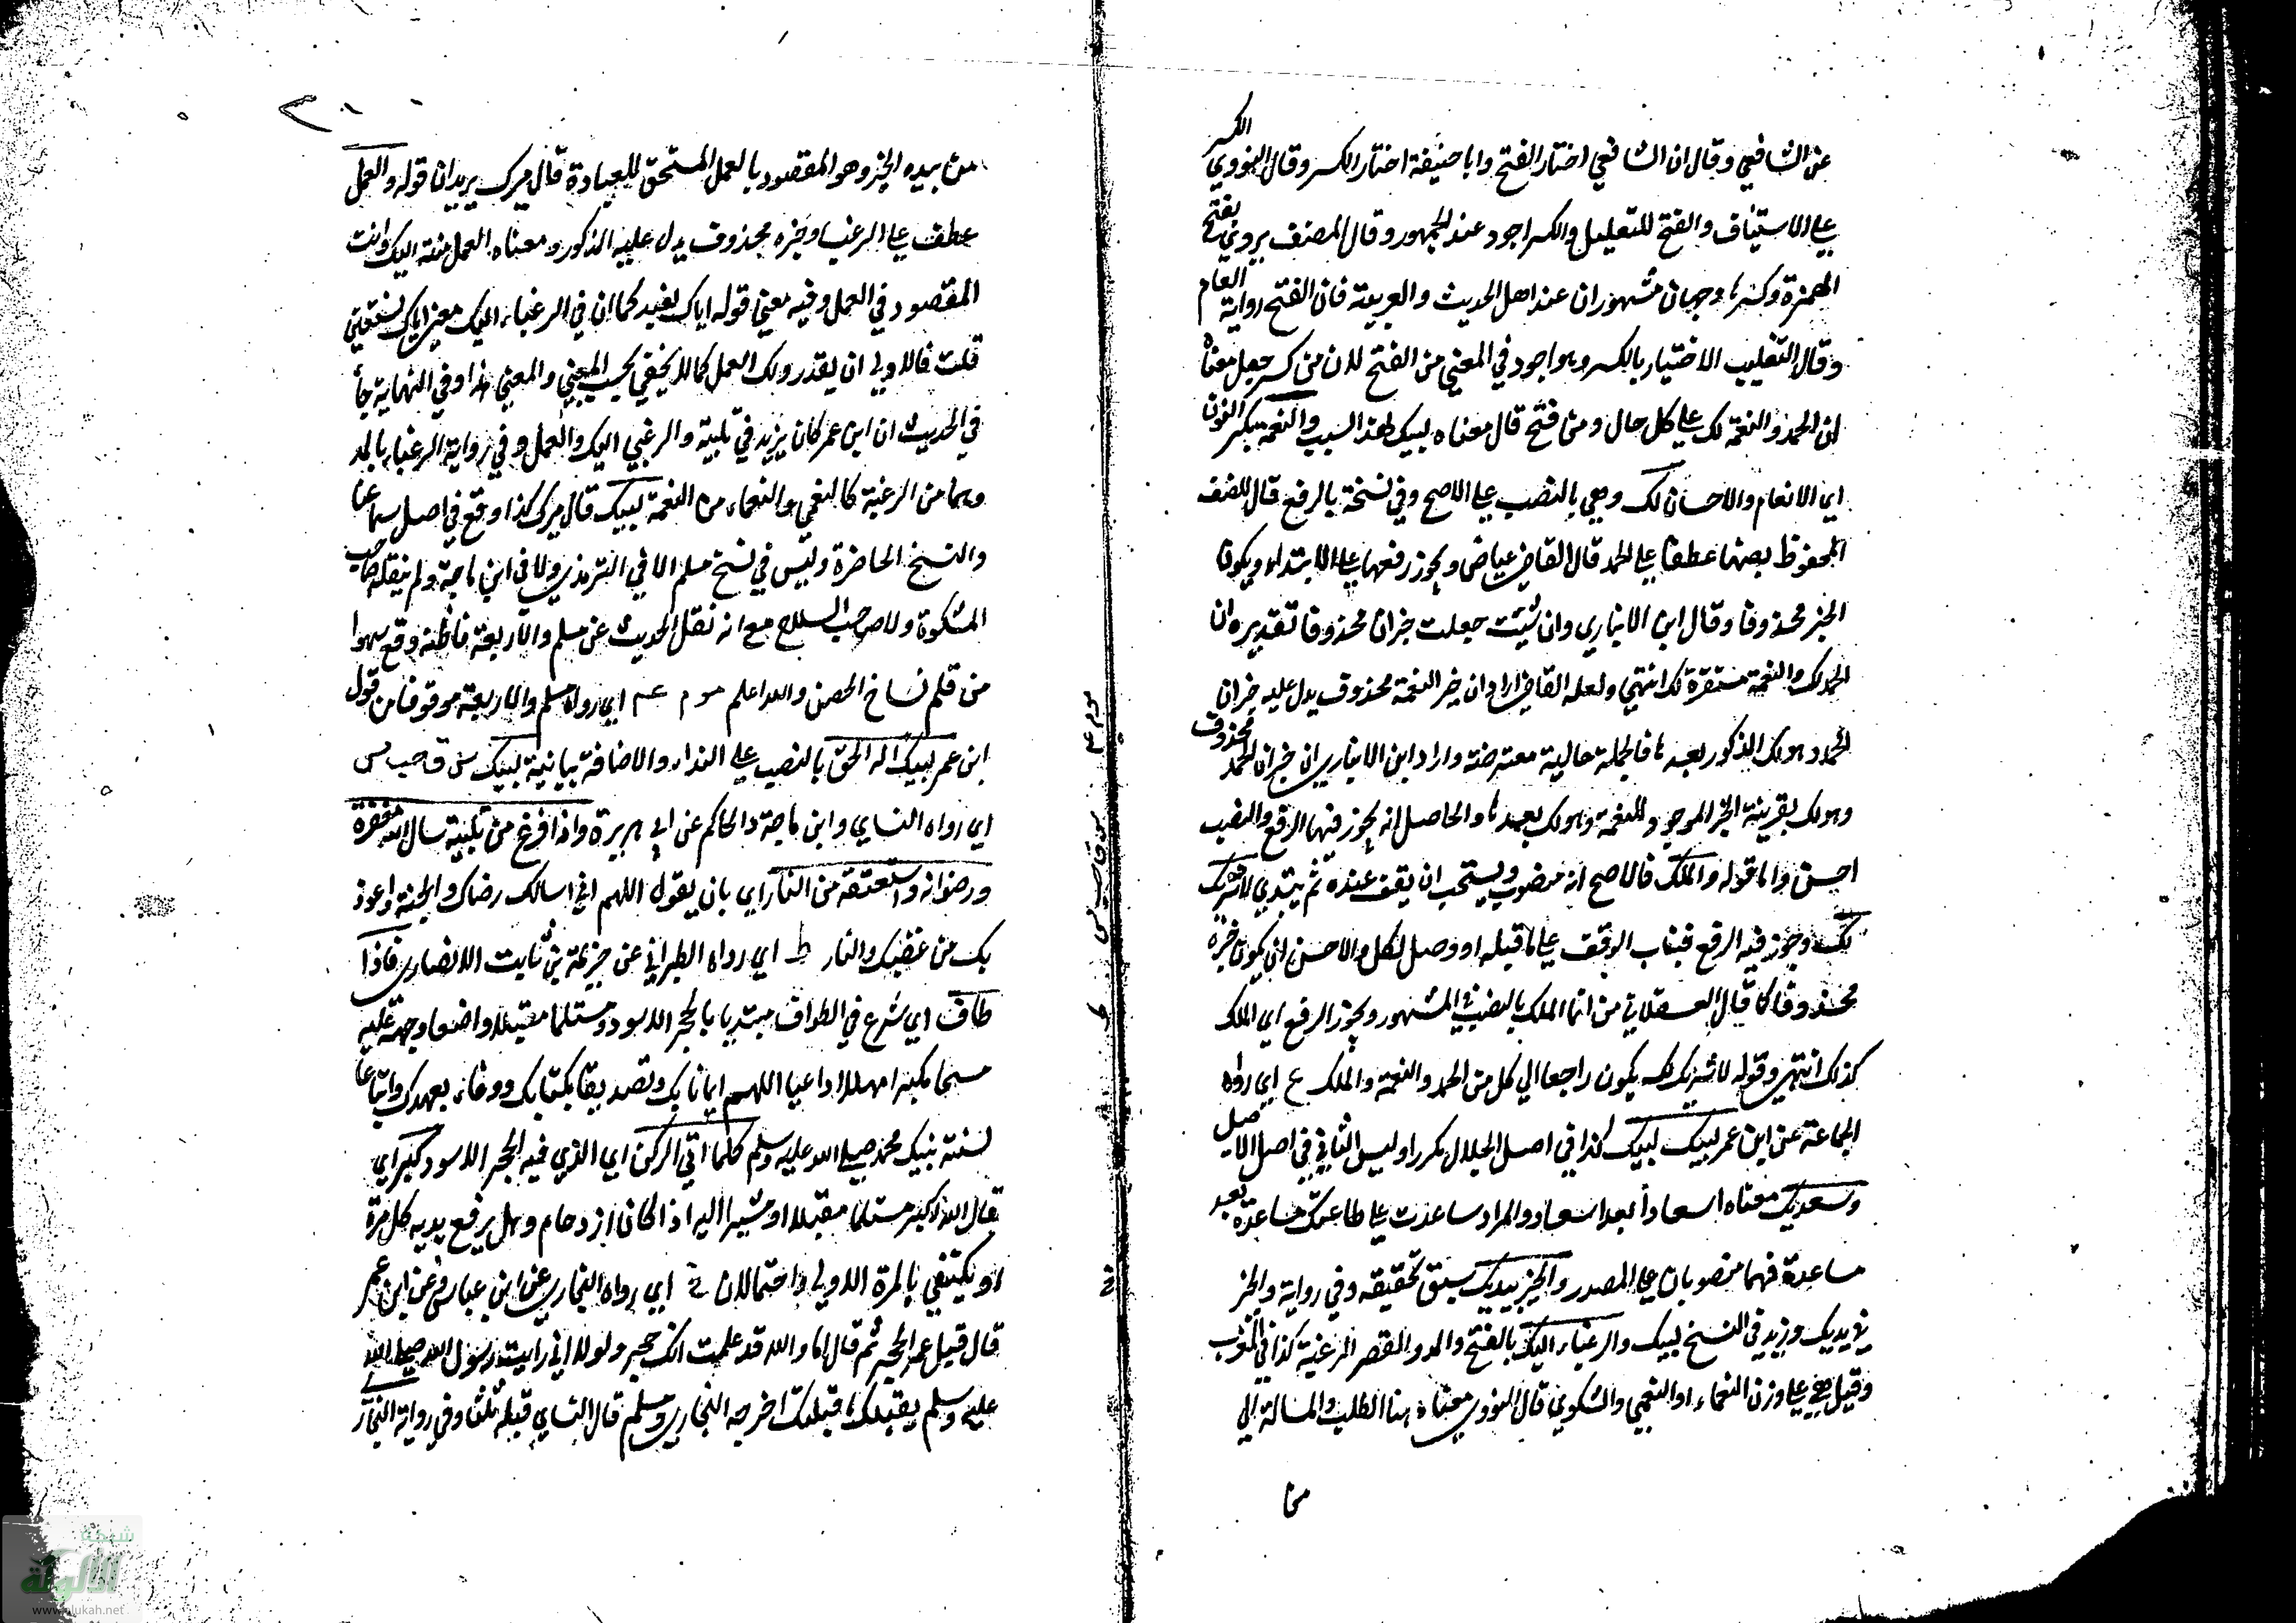 عن الشافعي وقال ان الشافعي اختار الفتح وابا حنيفة اختار الكسر وقال النووي الكسر
علي الاستيناف والفتح للتعليل والكسر اجود عند الجمهور وقال المصنف يروي بفتح
الهمزة وكسرها وجهان مشهوران عند اهل الحديث والعربية فان الفتح رواية العام
وقال الثعلب الاختيار بالكسر وهو اجود في المعني من الفتح لان من كسر جعل معناه
ان الحمد والنعمة لك علي كل حال ومن فتح قال معناه لبيك لهذا السبب والنعمة بكسر النون
اي الانعام والاحسان لك وهي بالنصب علي الاصح وفي نسخة بالرفع قال المصنف
المحفوظ بصنها عطفا علي الحمد قال القاضي عياض ويجوز رفعها علي الابتداء ويكون
الخبر محذوفا وقال ابن الانباري وان شئت جعلت خبران محذوفا تقديره ان
الحمد لك والنعمة مستقرة لك انتهي ولعله القاضي اراد ان خبر النعمة محذوف يدل عليه خبران
الحمد وهو لك المذكور بعدها فالجملة حالية معترضة واراد ابن الانباري ان خبران الحمد محذوف
وهو لك بقرينة الخبر الموجود للنعمة وهو لك بعدها والحاصل انه يجوز فيها الرفع والنصب
احسن واما قوله والملك فالاصح انه منصوب ويستحب ان يقف عنده ثم يبتدي لا شريك
لك وجوز فيه الرفع فيناب الوقف علي ما قبله او وصل لكل والاحسن ان يكون خبره
محذوفا كما قال العسقلاني من انما الملك بالنصب في المشهور ويجوز الرفع اي الملك
كذلك انتهي وقوله لا شريك لك يكون راجعا الي كل من الحمد والنعمة والملك ع اي رواه
الجماعة عن ابن عمر لبيك لبيك كذا في اصل الجلال مكررا وليس الثاني في اصل الاصيل
وسعديك معناه اسعادا بعد اسعاد والمراد ساعدت علي طاعتك مساعدة بعد
مساعدة فهما منصوبان علي المصدر والخير بيديك سبق تحقيقه وفي رواية والخير
في يديك وزيد في النسخ لبيك والرغباء اليك بالفتح والمد والقصر الرغبة كذا في المغرب
وقيل هي علي وزن النعماء او النعمي والشكوي قال النووي معناه هنا الطلب والمسالة الي
من
من بيده الخير وهو المقصود بالعمل المستحق للعبادة قال ميرك يريد ان قوله والعمل
عطف علي الرغبا وخبره محذوف يدل عليه المذكور ومعناه العمل منته اليك وانت
المقصود في العمل وفيه معني قوله اياك نعبد كما ان في الرغباء اليك معني اياك نستعين
قلت فالاولي ان يقدر ولك العمل كما لا يخفي بحسب المبني والمعني هذا وفي النهاية جأ
في الحديث ان ابن عمر كان يزيد في تلبية والرغبي اليك والعمل وفي رواية الرغباء بالمد
وهما من الرغبة كالنعمي والنعماء من النعمة لبيك قال ميرك كذا وقع في اصل سماعنا
والنسخ الحاضرة وليس في نسخ مسلم الا في الترمذي ولا في ابن ماجة ولم ينقله صاحب
المشكوة ولا صاحب السلاح مع انه نقل الحديث عن مسلم والاربعة فاظنه وقع سهوا
من قلم نساخ الحصن والله اعلم موم عم اي رواه مسلم والاربعة موقوفا من قول
ابن عمر لبيك اله الحق بالنصب علي النداء والاضافة بيانية لبيك س ق حب مس
اي رواه النساي وابن ماجة والحاكم عن ابي هريرة واذا فرغ من تلبية سال الله مغفرة
ورضوانه واستعتقه من النار اي بان يقول اللهم اني اسالك رضاك والجنة واعوذ
بك من غضبك والنار ط اي رواه الطبراني عن خزيمة بن ثابت الانصاري فاذا
طاف اي شرع في الطواف مبتديا بالحجر الاسود ومستلما مقبلا واضعا وجهه عليه
مسبحا مكبرا مهللا داعيا اللهم ايمانا بك وتصديقا بكتابك ووفاء بعهدك واتباعا
لسنة نبيك محمد صلي الله عليه وسلم كلما اتي الركن اي الذي فيه الحجر الاسود كبر اي
قال الله اكبر مستلما مقبلا او مشيرا اليه اذا كان ازدحام وهل يرفع يديه كل مرة
او يكتفي بالمرة الاولي واحتمالان خ اي رواه البخاري عن ابن عباس وعن ابن عمر
قال قبل عمر الحجر ثم قال اما والله قد علمت انك حجر ولولا اني رايت رسول الله صلي الله
عليه وسلم يقبلك ما قبلتك اخرجه البخاري ومسلم قال النساي قبله ثلثا وفي رواية البخار
موم عم
س ق حب مس
ط
خ
شبكة
الألوكة
www.alukah.net